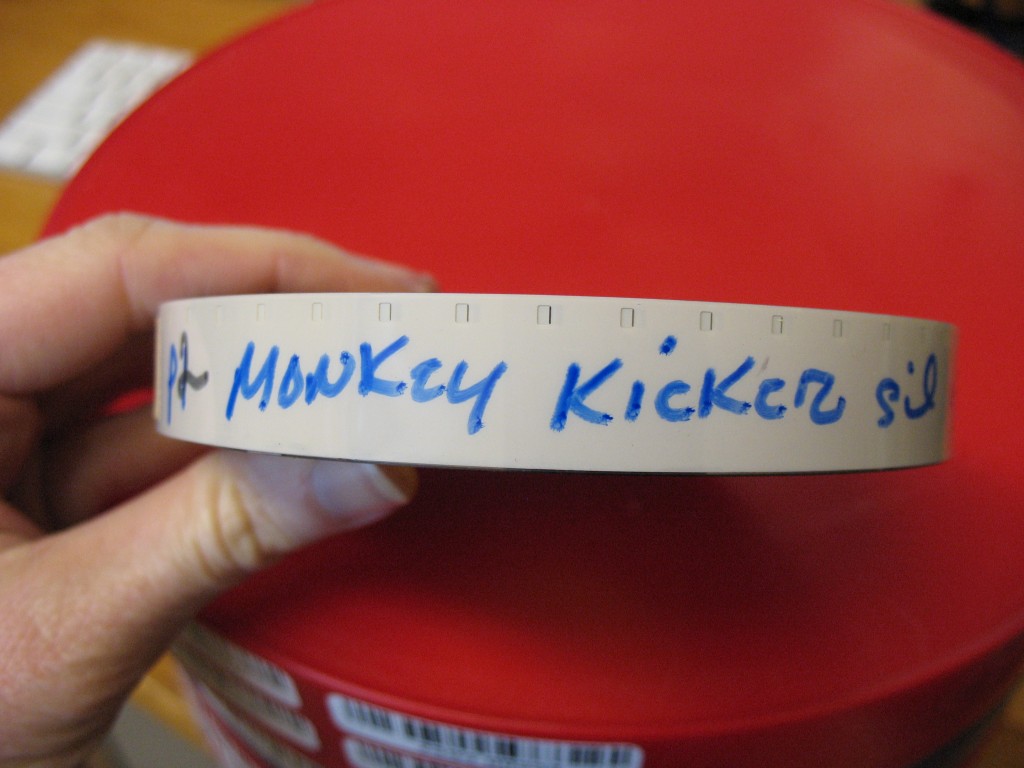 P2 MONKEY KICKER sil